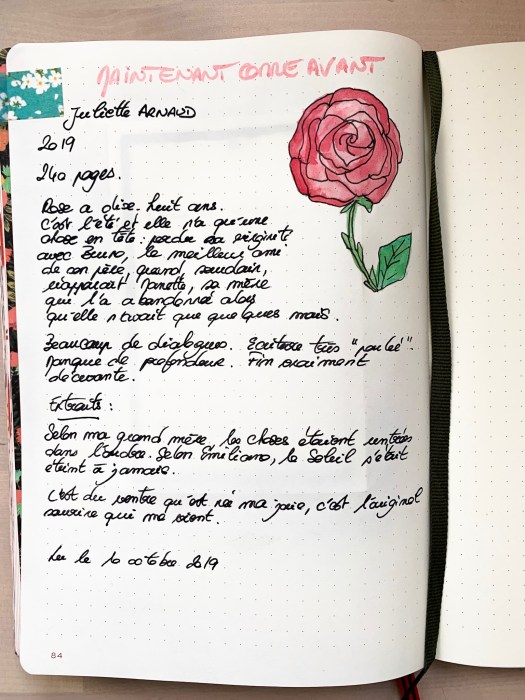 MAINTENANT COMME AVANT
Juliette ARNAUD
2019
240 pages.
Rose a dix-huit ans.
C'est l'été et elle n'a qu'une
chose en tête : perdre sa virginité
avec Bruno, le meilleur ami
de son père, quand, soudain,
réapparaît Nanette, sa mère
qui l'a abandonné alors
qu'elle n'avait que quelques mois.
Beaucoup de dialogues. Écriture très "parlé".
Manque de profondeur. Fin vraiment
décevante.
Extraits :
Selon ma grand mère, les choses étaient rentrées
dans l'ordre. Selon Emiliano, le Soleil s'était
éteint à jamais.
C'est du ventre qu'est né ma joie, c'est l'originel
sourire qui me vient.
Lu le 10 octobre 2019
84